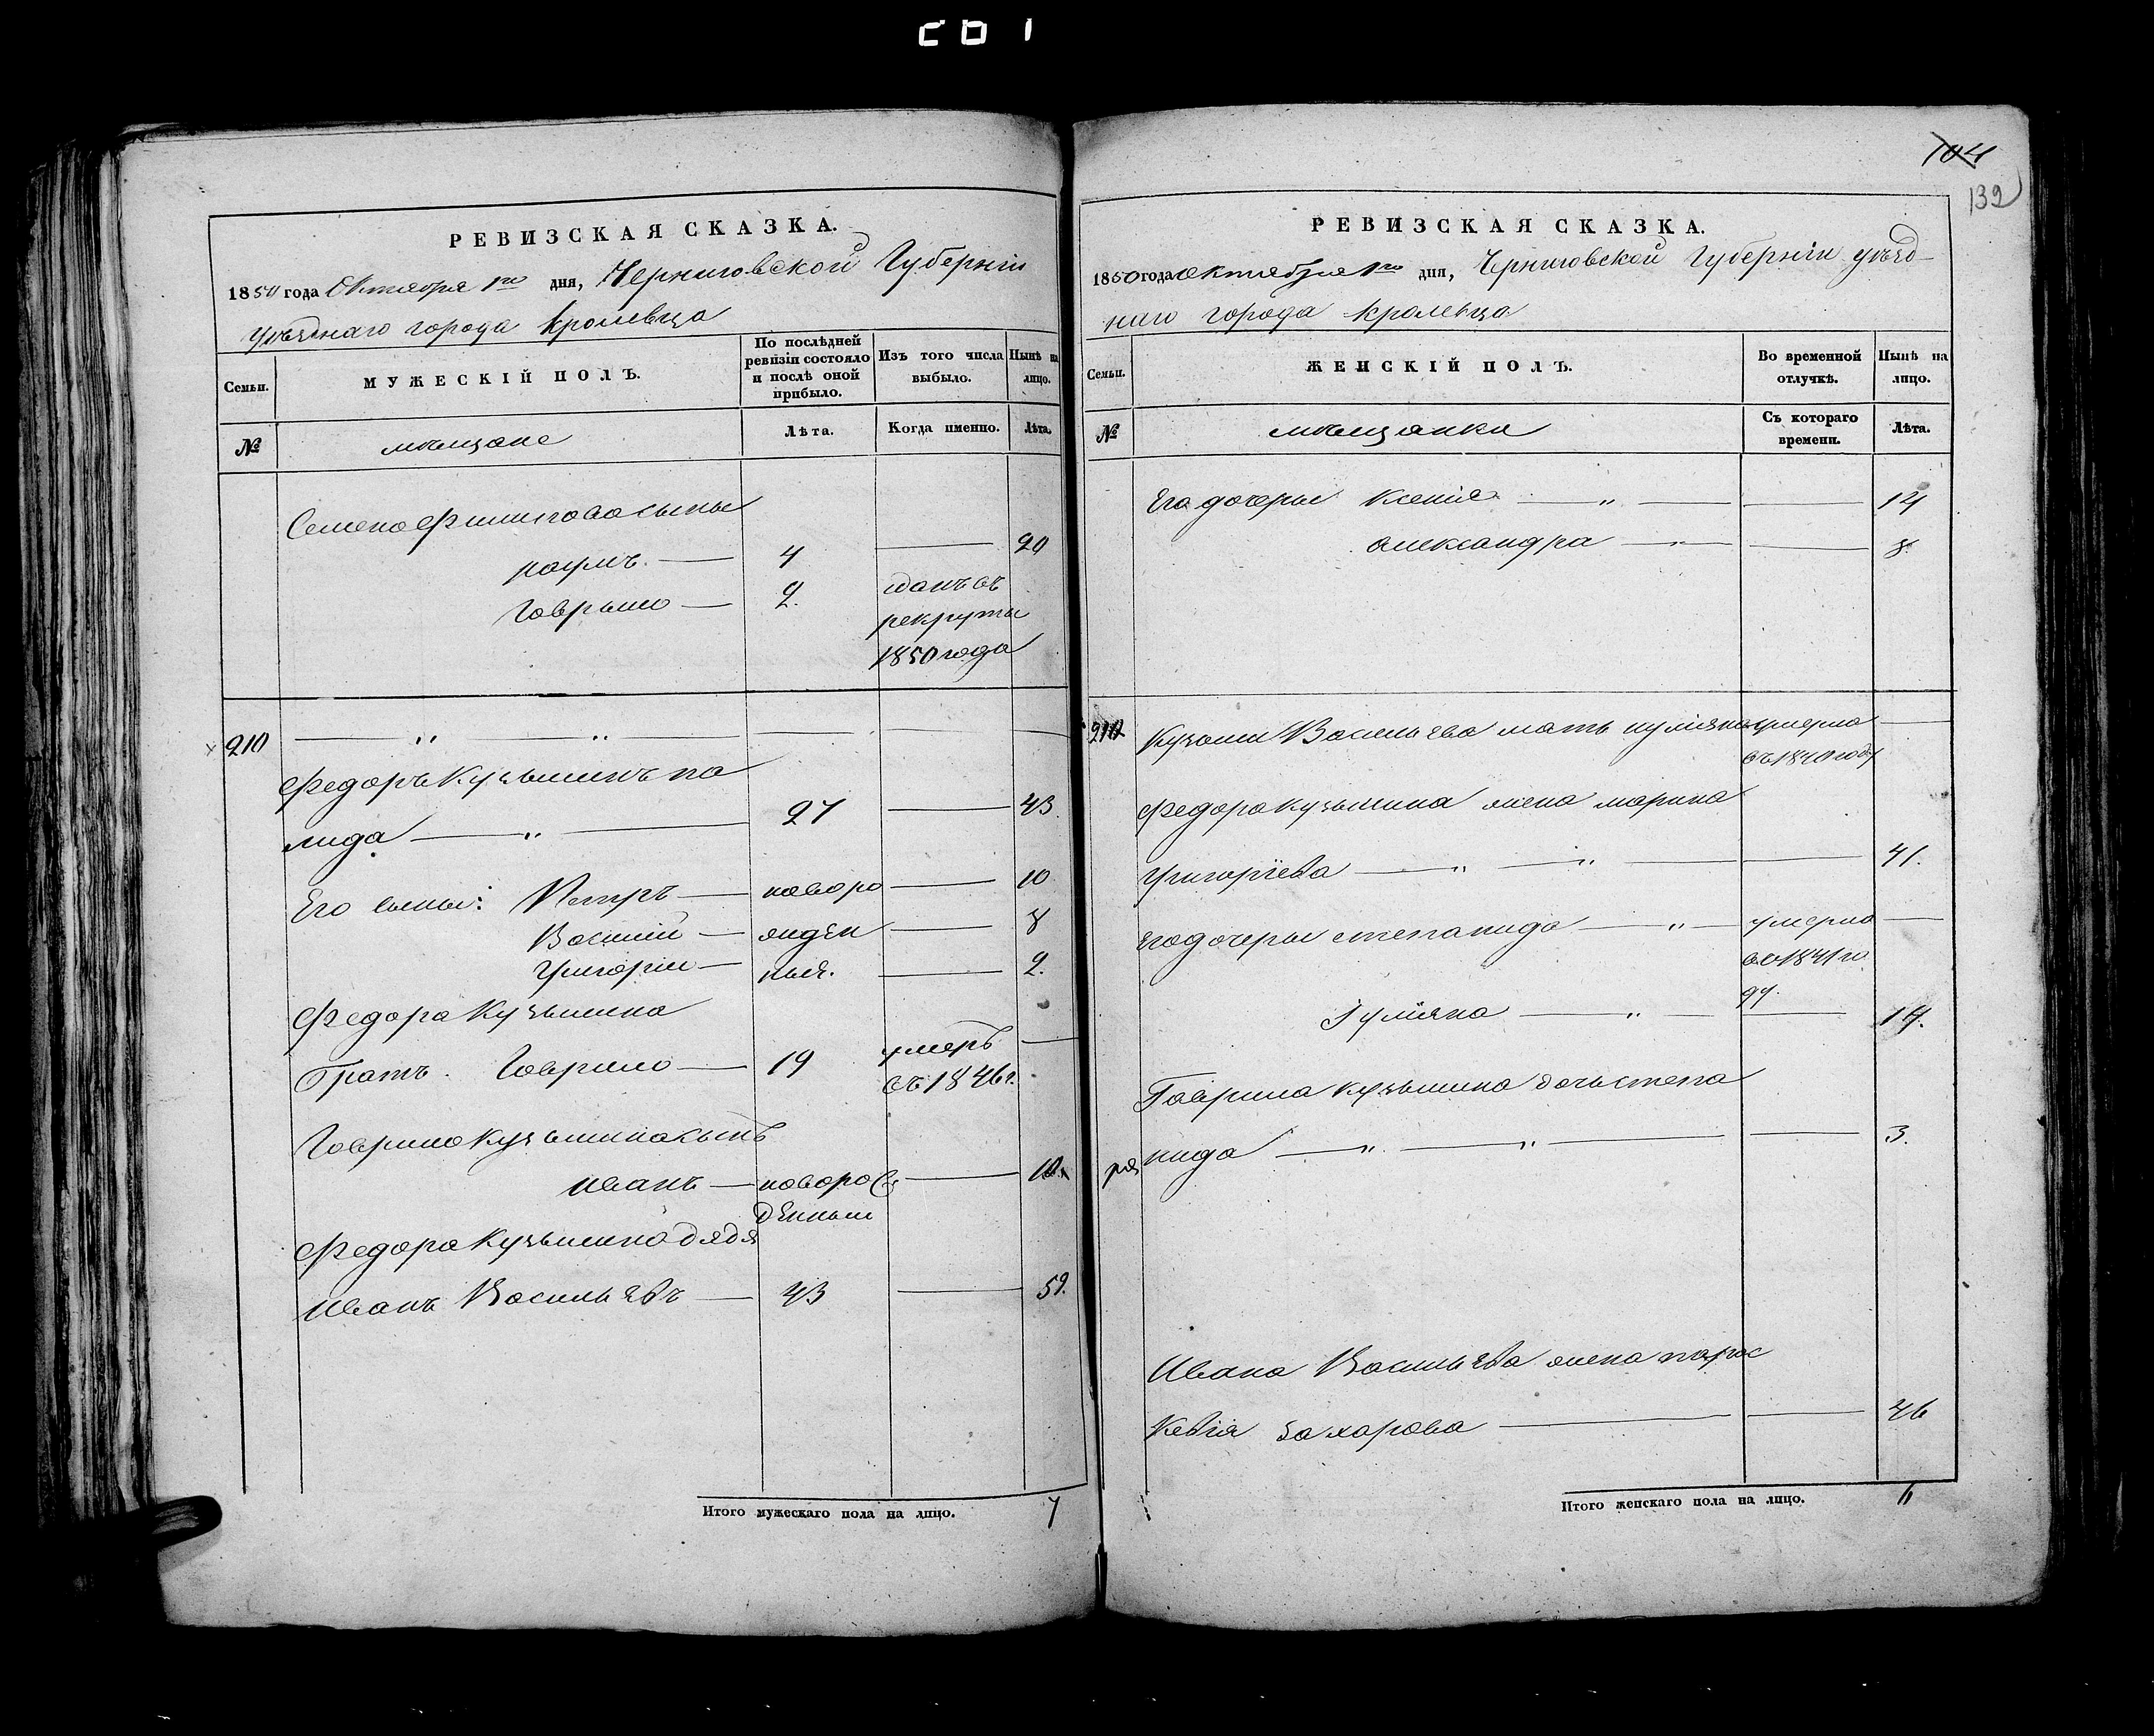 104
132
РЕВИЗСКАЯ СКАЗКА.
1850 года Октября 1го дня, Черниговской Губерніи
уѣзднаго города Кролевца
Семьи.
МУЖЕСКІЙ ПОЛЪ.
По послѣдней ревизіи состояло и послѣ оной прибыло.
Изъ того числа выбыло.
Нынѣ на лицо.
№
мѣщане
Лѣта.
Когда именно.
Лѣта.
Семена Филипова сыны
наумъ — 4 — 20
Гаврыло — 2. зданъ въ
рекруты
1850 года
210 — " — " —
Федоръ Кузьминъ па
лида — " — 27 — 43.
Его сыны: Петръ — наворо — 10
Василій — жден — 8
Григорій — ныя. — 2.
Федора Кузьмина
братъ. Гаврило — 19 умеръ —
въ 1846 г.
Гаврила Кузьмина сынъ
иванъ — наворо — 10.
денный
Федора Кузьмина дядя
иванъ Васильевъ — 43 — 59.
Итого мужескаго пола на лицо. 7
РЕВИЗСКАЯ СКАЗКА.
1850 года октября 1го дня, Черниговской Губерніи уѣзд-
наго города Кролевца
Семьи.
ЖЕНСКІЙ ПОЛЪ.
Во временной отлучкѣ.
Нынѣ на лицо.
№
мѣщанки
Съ котораго времени.
Лѣта.
Его дочеры Ксенія — " — 14
александра — " — 8.
210 Кузьми Васильева мать иуліяна умерла —
въ 1840 году
Федора кузьмина жена марина
Григорїева — " — " — 41.
Его дочеры степанида — " — умерла —
въ 1841 го
ду.
Іуліяна — " — 14.
Гаврила кузьмина дочь степа
нида — " — " — 3.
Ивана Васильева жена парас
кевія захарова — 46
Итого женскаго пола на лицо. 6